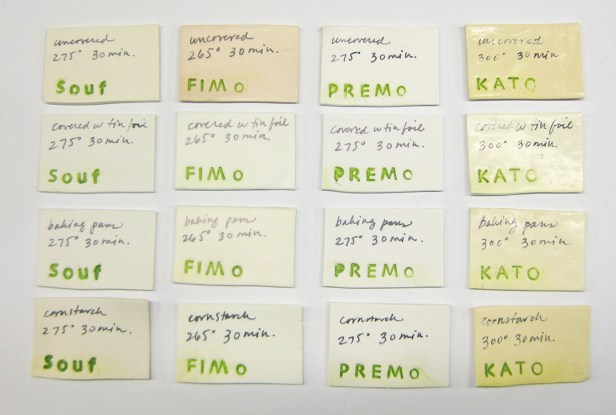 uncovered
275° 30 min.
Souf
uncovered
265° 30 min.
FIMO
uncovered
275° 30 min.
PREMO
uncovered
300° 30 min
KATO
covered w tin foil
275° 30 min.
Souf
covered w tin foil
265° 30 min.
FIMO
covered w tin foil
275° 30 min.
PREMO
covered w tin foil
300° 30 min.
KATO
baking pans
275° 30 min.
Souf
baking pans
265° 30 min.
FIMO
baking pans
275° 30 min.
PREMO
baking pans
300° 30 min.
KATO
cornstarch
275° 30 min.
Souf
cornstarch
265° 30 min.
FIMO
cornstarch
275° 30 min.
PREMO
cornstarch
300° 30 min.
KATO